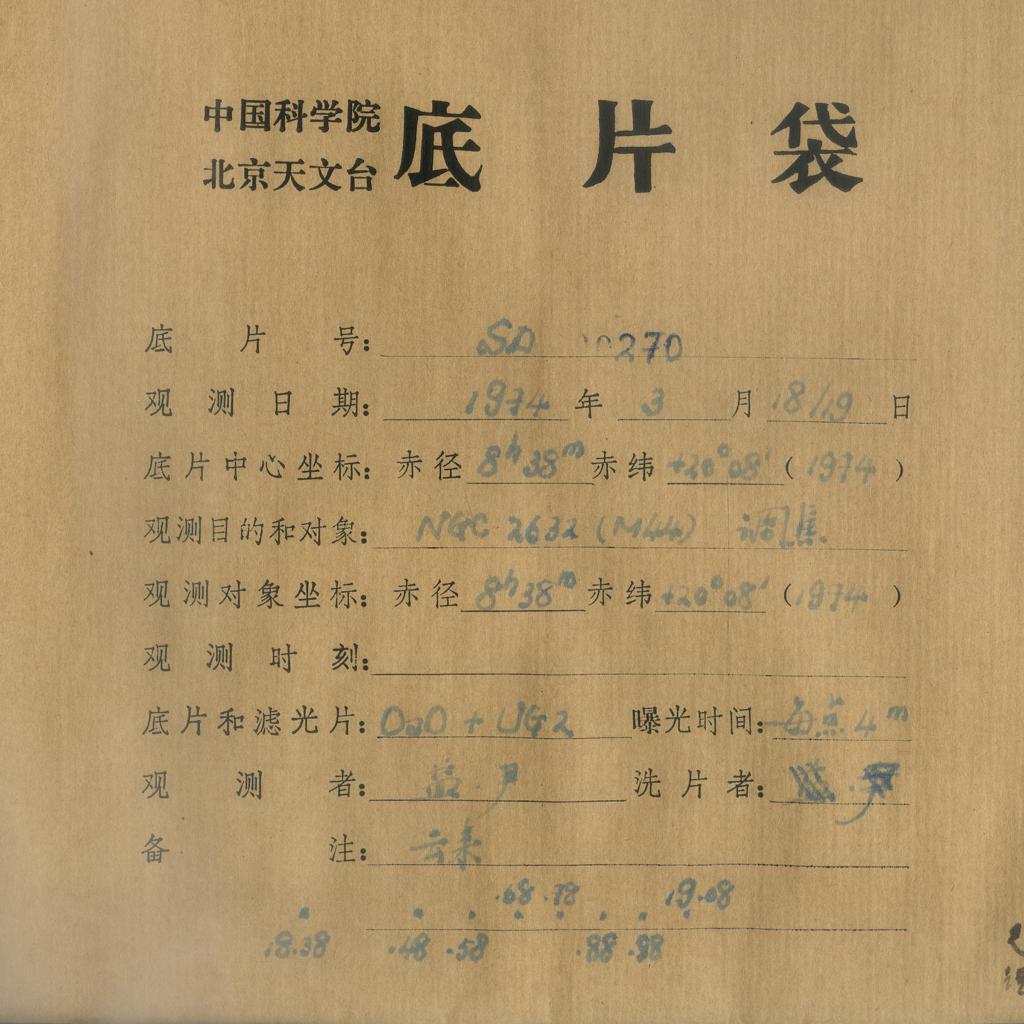 中国科学院
北京天文台
底片袋
底片号: SD 00270
观测日期: 1974 年 3 月 18/19 日
底片中心坐标: 赤径 8h38m 赤纬 +20°08′ (1974)
观测目的和对象: NGC 2632 (M44) 调焦.
观测对象坐标: 赤径 8h38m 赤纬 +20°08′ (1974)
观测时刻:
底片和滤光片: OaO + UG2 曝光时间: 每焦 4m
观测者: 蓝.尹 洗片者:
备注: 云来
.68 .78 19.08
18.38 .48 .58 .88 .98